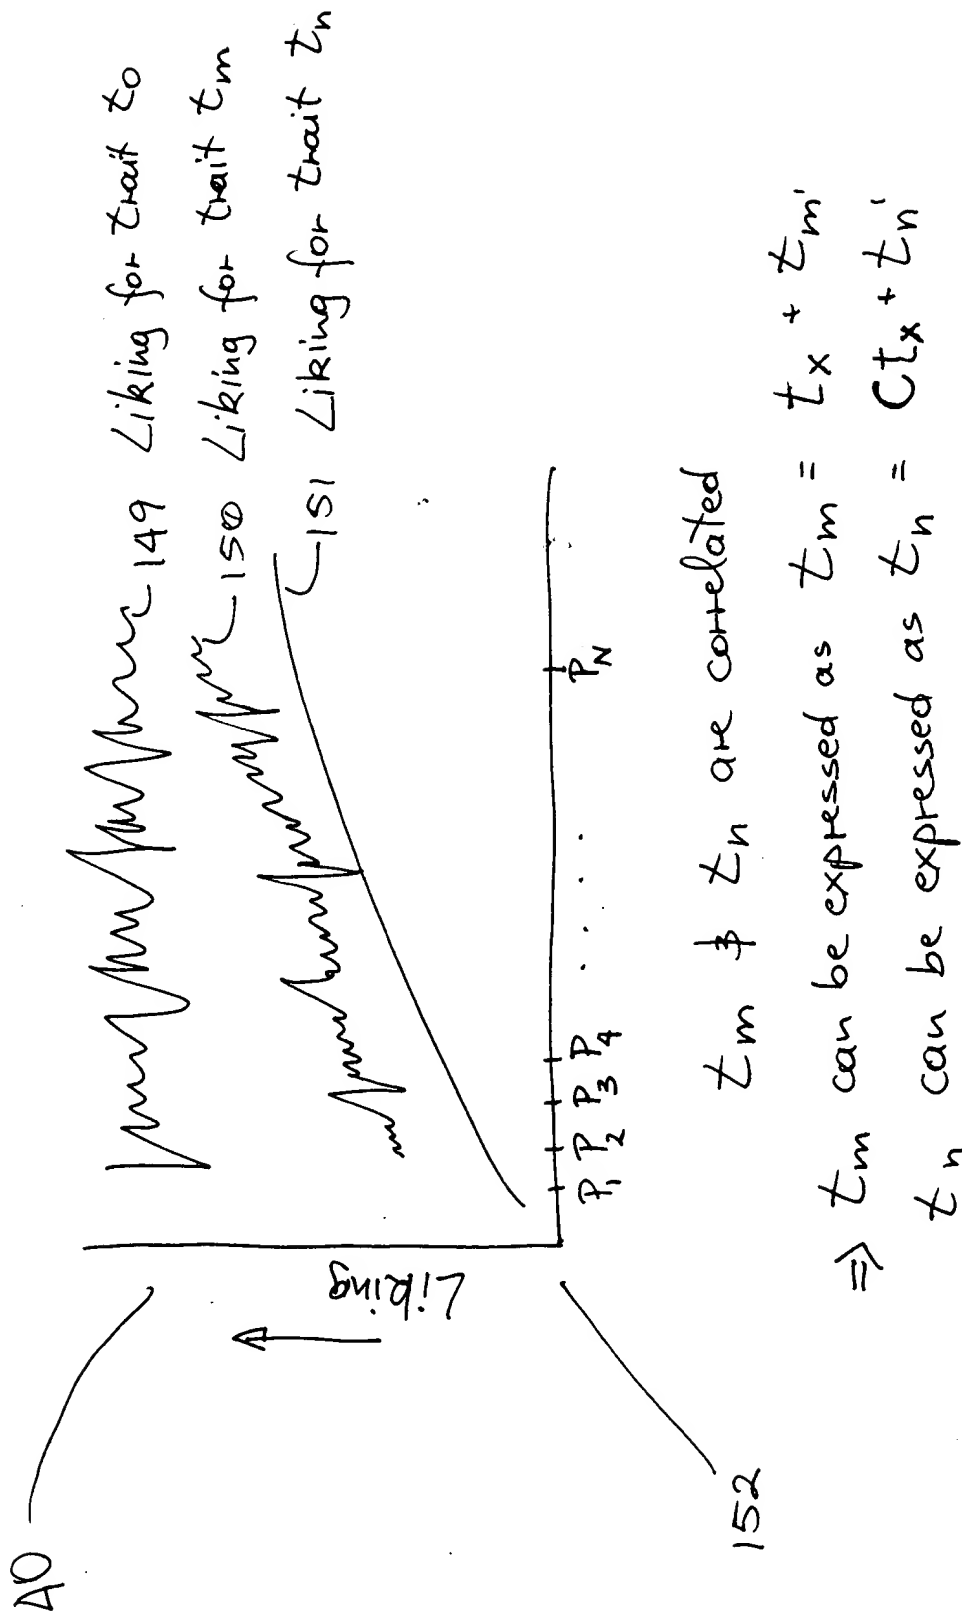 A0
149 Liking for trait t₀
150 Liking for trait tₘ
151 Liking for trait tₙ
Liking
P₁ P₂ P₃ P₄ . . . . P_N
152
tₘ & tₙ are correlated
⇒ tₘ can be expressed as tₘ = tₓ + tₘ'
tₙ can be expressed as tₙ = Ctₓ + tₙ'